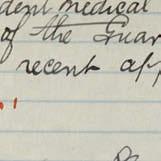 dent medical
of the Guar
recent app